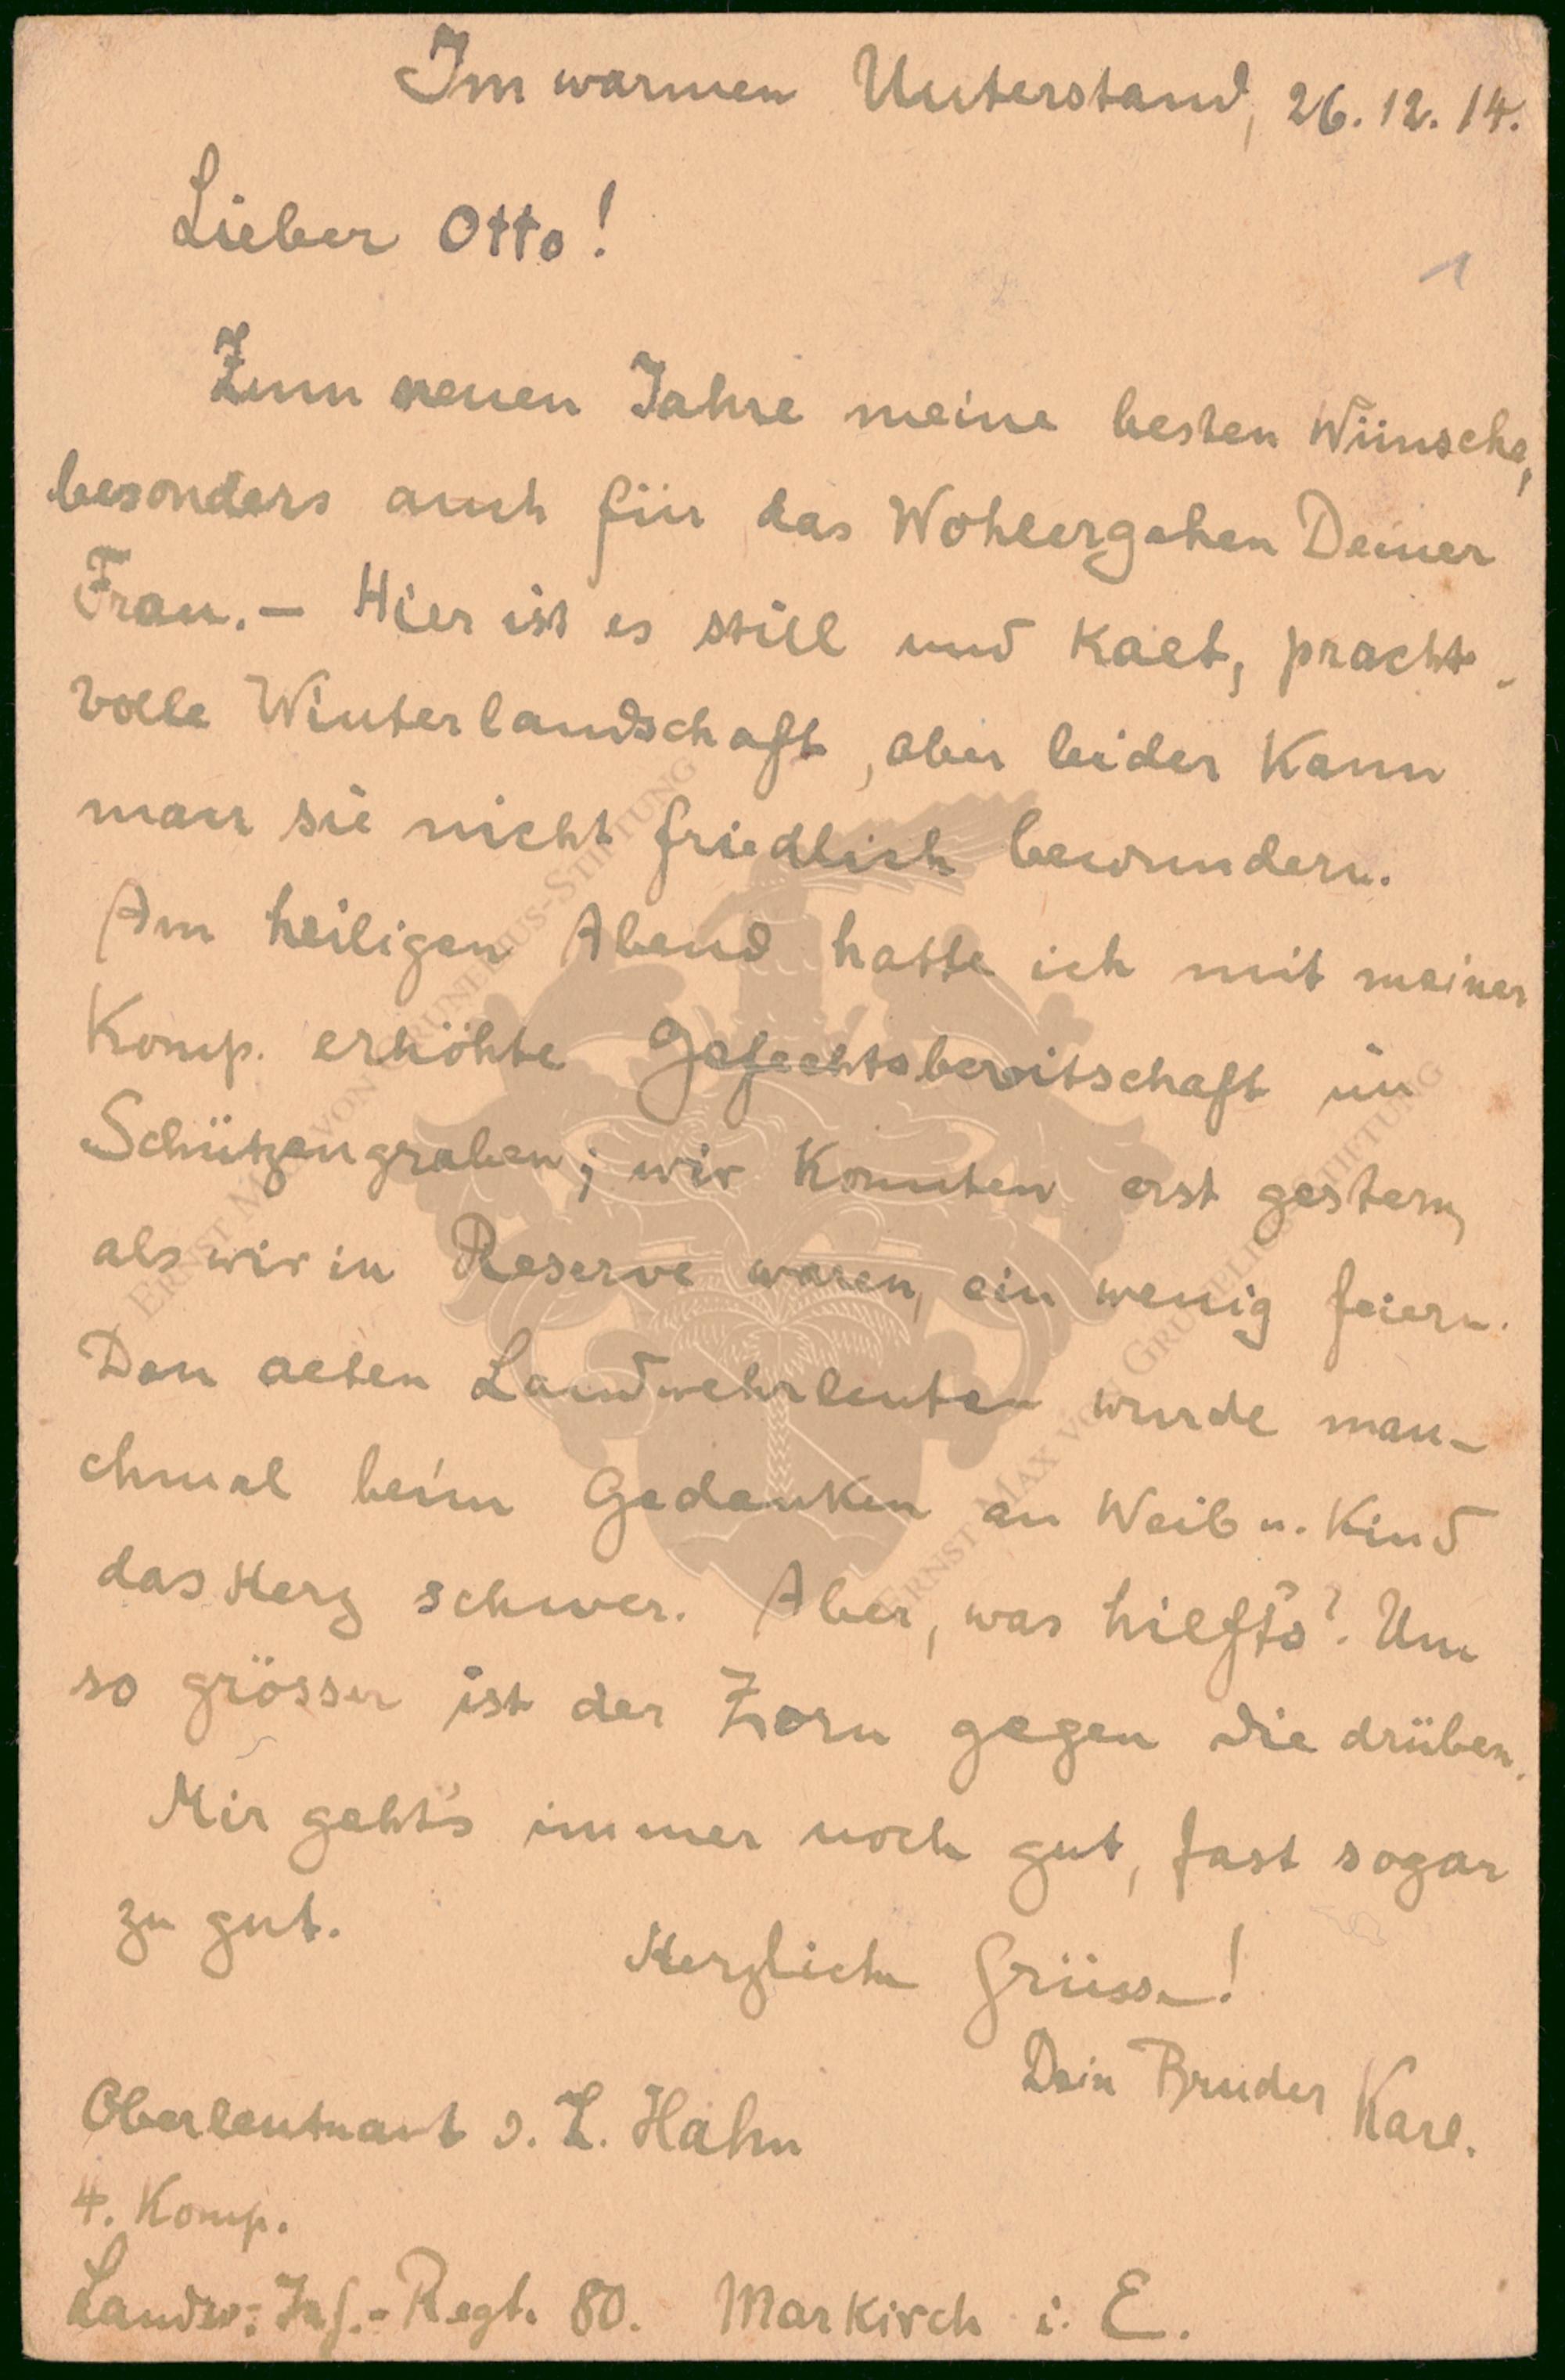 Im warmen Unterstand, 26. 12. 14.
Lieber Otto!
1
Zum neuen Jahre meine besten Wünsche,
besonders auch für das Wohlergehen Deiner
Frau. — Hier ist es still und kalt, pracht-
volle Winterlandschaft, aber leider kann
man sie nicht friedlich bewundern.
Am heiligen Abend hatte ich mit meiner
Komp. erhöhte Gefechtsbereitschaft im
Schützengraben; wir konnten erst gestern,
als wir in Reserve waren, ein wenig feiern.
Den alten Landwehrleuten wurde man-
chmal beim Gedanken an Weib u. Kind
das Herz schwer. Aber, was hilft's? Um
so grösser ist der Zorn gegen die drüben.
Mir geht's immer noch gut, fast sogar
zu gut.
Herzliche Grüsse!
Dein Bruder Karl.
Oberleutnant d. L. Hahn
4. Komp.
Landw.-Inf.-Regt. 80. Markirch i. E.
ERNST MAX VON GRUNELIUS-STIFTUNG
ERNST MAX VON GRUNELIUS-STIFTUNG